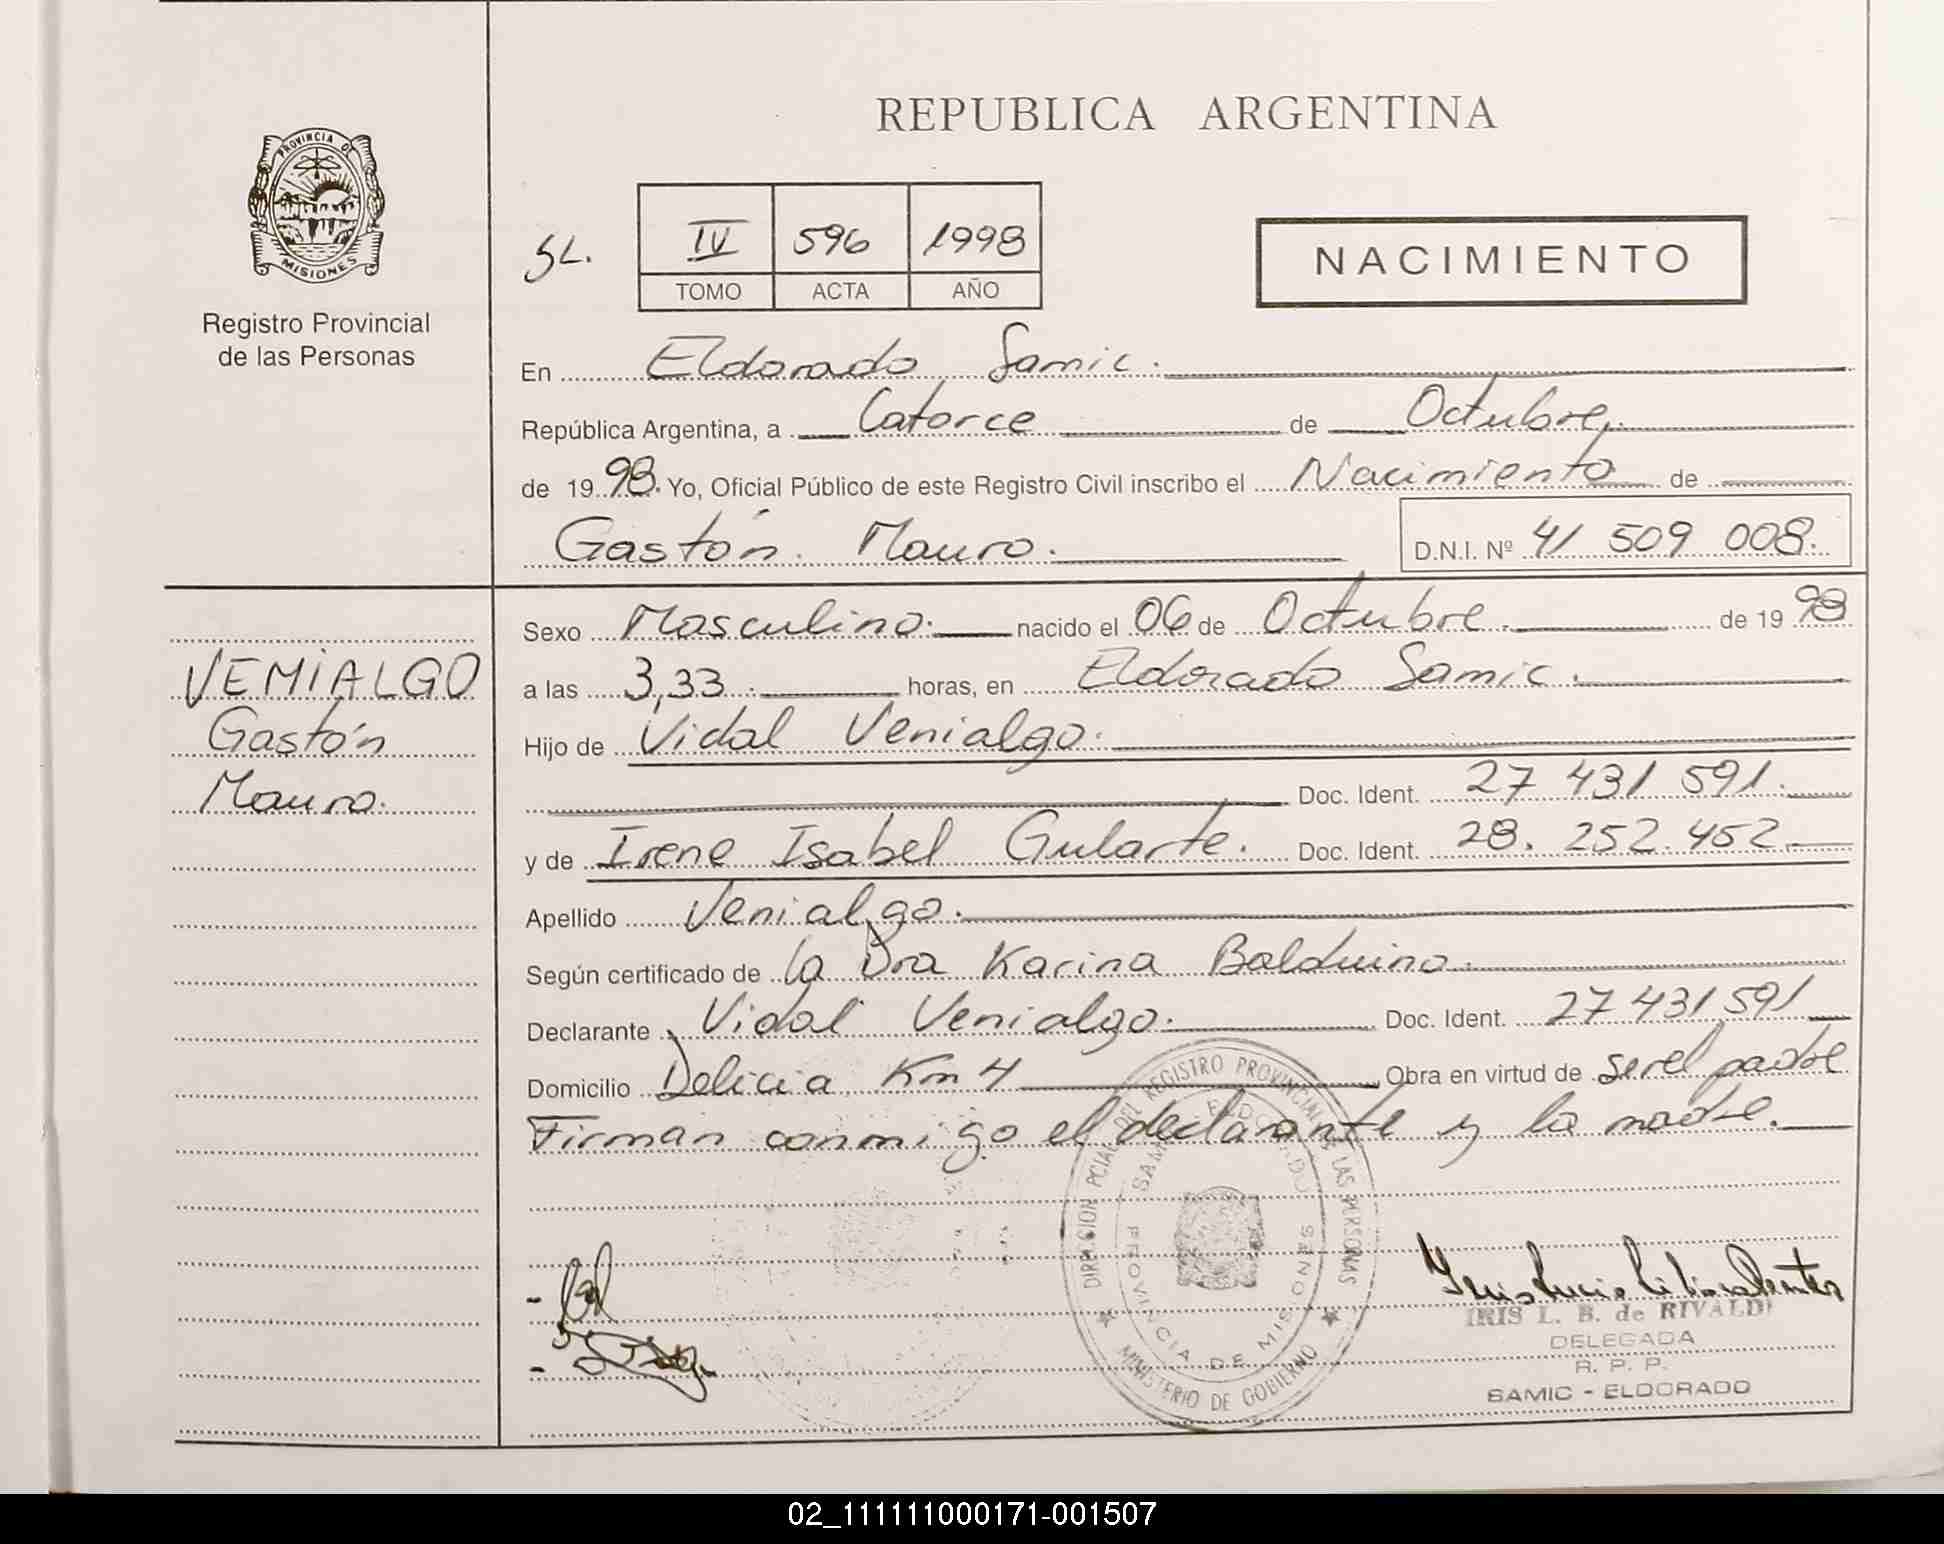 REPUBLICA ARGENTINA
PROVINCIA DE
MISIONES
Registro Provincial
de las Personas
SL.
IV 596 1998
TOMO ACTA AÑO
NACIMIENTO
En Eldorado Samic.
República Argentina, a Catorce de Octubre,
de 1998. Yo, Oficial Público de este Registro Civil inscribo el Nacimiento de
Gastón Mauro. D.N.I. Nº 41 509 008.
VEMIALGO
Gastón
Mauro.
Sexo Masculino. nacido el 06 de Octubre. de 1998
a las 3,33. horas, en Eldorado Samic.
Hijo de Vidal Venialgo.
Doc. Ident. 27 431 591.
y de Irene Isabel Gularte. Doc. Ident. 28. 252. 452.
Apellido Venialgo.
Según certificado de la Dra Karina Balduino.
Declarante Vidal Venialgo. Doc. Ident. 27 431,591
Domicilio Delicia Km 4 Obra en virtud de ser el padre
Firman conmigo el declarante y la madre.
DIRECCION PCIAL. DEL REGISTRO PROVINCIAL DE LAS PERSONAS
MINISTERIO DE GOBIERNO
PROVINCIA DE MISIONES
IRIS L. B. de RIVALDI
DELEGADA
R. P. P.
SAMIC - ELDORADO
02_111111000171-001507